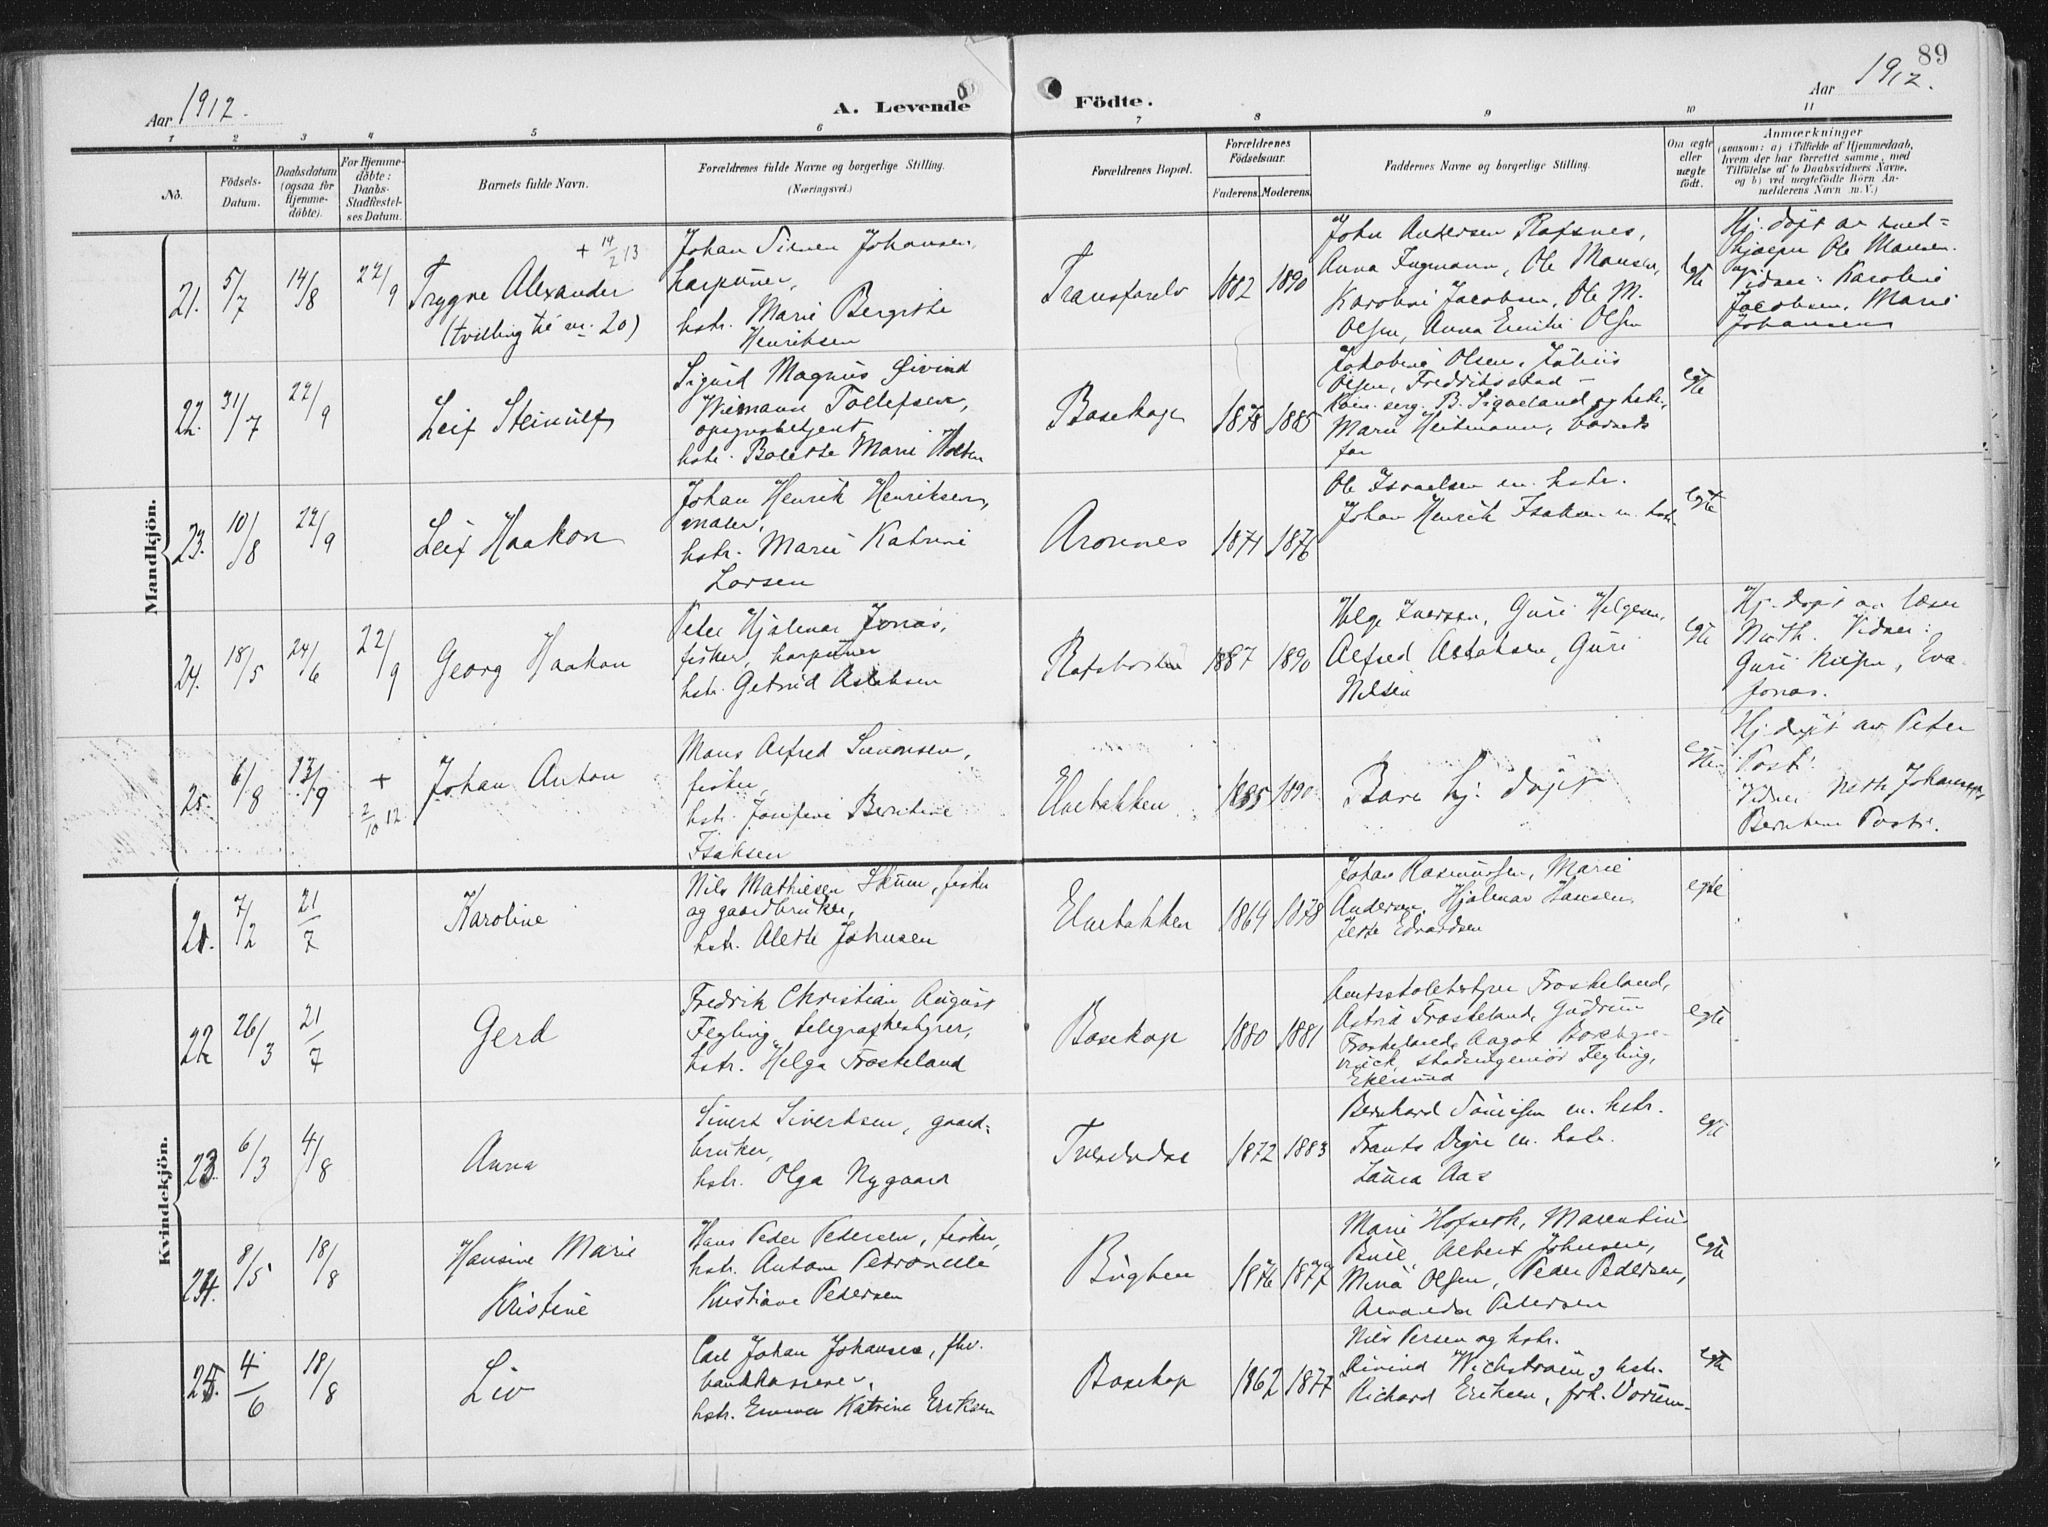 89
Aar 1912.
A. Levende Födte.
Aar 1912.
1 2 3 4 5 6 7 8 9 10 11
No.
Födsels-
Datum.
Daabsdatum
(ogsaa for
Hjemme-
döbte).
For Hjemme-
döbte:
Daabs-
Stadfæstel-
ses Datum.
Barnets fulde Navn.
Forældrenes fulde Navne og borgerlige Stilling.
(Næringsvei.)
Forældrenes Bopæl.
Forældrenes
Födselsaar.
Faderens. Moderens.
Faddernes Navne og borgerlige Stilling.
Om ægte
eller
uægte
født.
Anmærkninger
(saasom: a) i Tilfælde af Hjemmedaab,
hvem der har forrettet samme, med
Tilföielse af to Daabsvidners Navne,
og b) ved uægtefödte Börn An-
melderens Navn m. V.)
Mandkjön.
21. 5/7 14/8 22/9
+ 14/2 13
Trygve Alexander
(tvilling til nr. 20)
Johan Johansen,
harpuner,
hstr. Marie Bergitte
Henriksen
Transfarelv
1882 1890
John Andersen Rafsnes,
Anna Ingmann, Ole Mansen,
Karoline Jacobsen, Ole M.
Olsen, Anna Emilie Olsen
egte
Hj. døpt av
hjælper Ole Mansen.
Vidner: Karoline
Jacobsen, Marie
Johansen
22. 31/7 22/9
Leif Steinulf
Sigurd Magnus Øivind
Wiemann Tollefsen,
opsynsbetjent
hstr. Bolette Marie Holten
Bosekop
1878 1885
Jakobine Olsen, Julius
Olsen, Fredriksstad –
serg. B. Sigveland og hstr.,
Marie Heitmann, barnets
far
egte
23. 10/8 22/9
Leif Haakon
Johan Henrik Henriksen,
maler,
hstr. Marie Katrine
Larsen
Aronnes
1871 1876
Ole Israelsen m. hstr.
Johan Henrik Isaksen m. hstr.
egte
24. 18/5 24/6 22/9
Georg Haakon
Peter Hjalmar Jonas,
fisker, harpuner
hstr. Getrud Aslaksen
Rafsbotten
1887 1890
Helge Iversen, Guri Helgesen,
Alfred Aslaksen, Guri
Nilsen
egte
Hj. døpt av læser
Math. Vidner:
Guri Nilsen, Eva
Jonas.
25. 6/8 13/9 + 2/10 12
Johan Anton
Mons Alfred Simonsen,
fisker,
hstr. Josefine Berntine
Isaksen
Elvebakken
1885 1890
Bare hj. døpt
egte
Hj. døpt av Peter
Posti.
Vidner Math. Johannessen,
Berntine Posti.
Kvindekjön.
21. 7/2 21/7
Karoline
Nils Mathiesen Skum, fisker
og gaardbruker,
hstr. Alette Johnsen
Elvebakken
1864 1878
Johan Rasmussen, Marie
Andersen, Hjalmar Hansen,
Jette Edvardsen
egte
22. 26/3 21/7
Gerd
Fredrik Christian August
Fegling, telegrafbestyrer,
hstr. Helga Froskeland
Bosekop
1880 1881
Amtsskolebestyrer Froskeland,
Astrid Froskeland, Gudrun
Froskeland, Aagot Borchgre-
vinck, stadsingeniør Fegling,
Ekersund
egte
23. 6/3 4/8
Anna
Sivert Sivertsen, gaard-
bruker,
hstr. Olga Nygaard
Tverelvdal
1872 1883
Bernhard m. hstr.
Frants Digre m. hstr.
Laura Aas
egte
24. 8/5 18/8
Hansine Marie
Kristine
Hans Peder Pedersen, fisker,
hstr. Antone Petronelle
Kristiane Pedersen
Bugten
1876 1877
Marie Hofseth, Marentine
Buil, Albert Johnsen,
Mina Olsen, Peder Pedersen,
Amanda Petersen
egte
25. 4/6 18/8
Liv
Carl Johan Johansen, fhv.
bankkasserer,
hstr. Emma Katrine Eriksen
Bosekop
1862 1877
Nils Persen og hstr.
Eivind Wichstrøm og hstr.
Richard Eriksen, frk. Vorum
egte